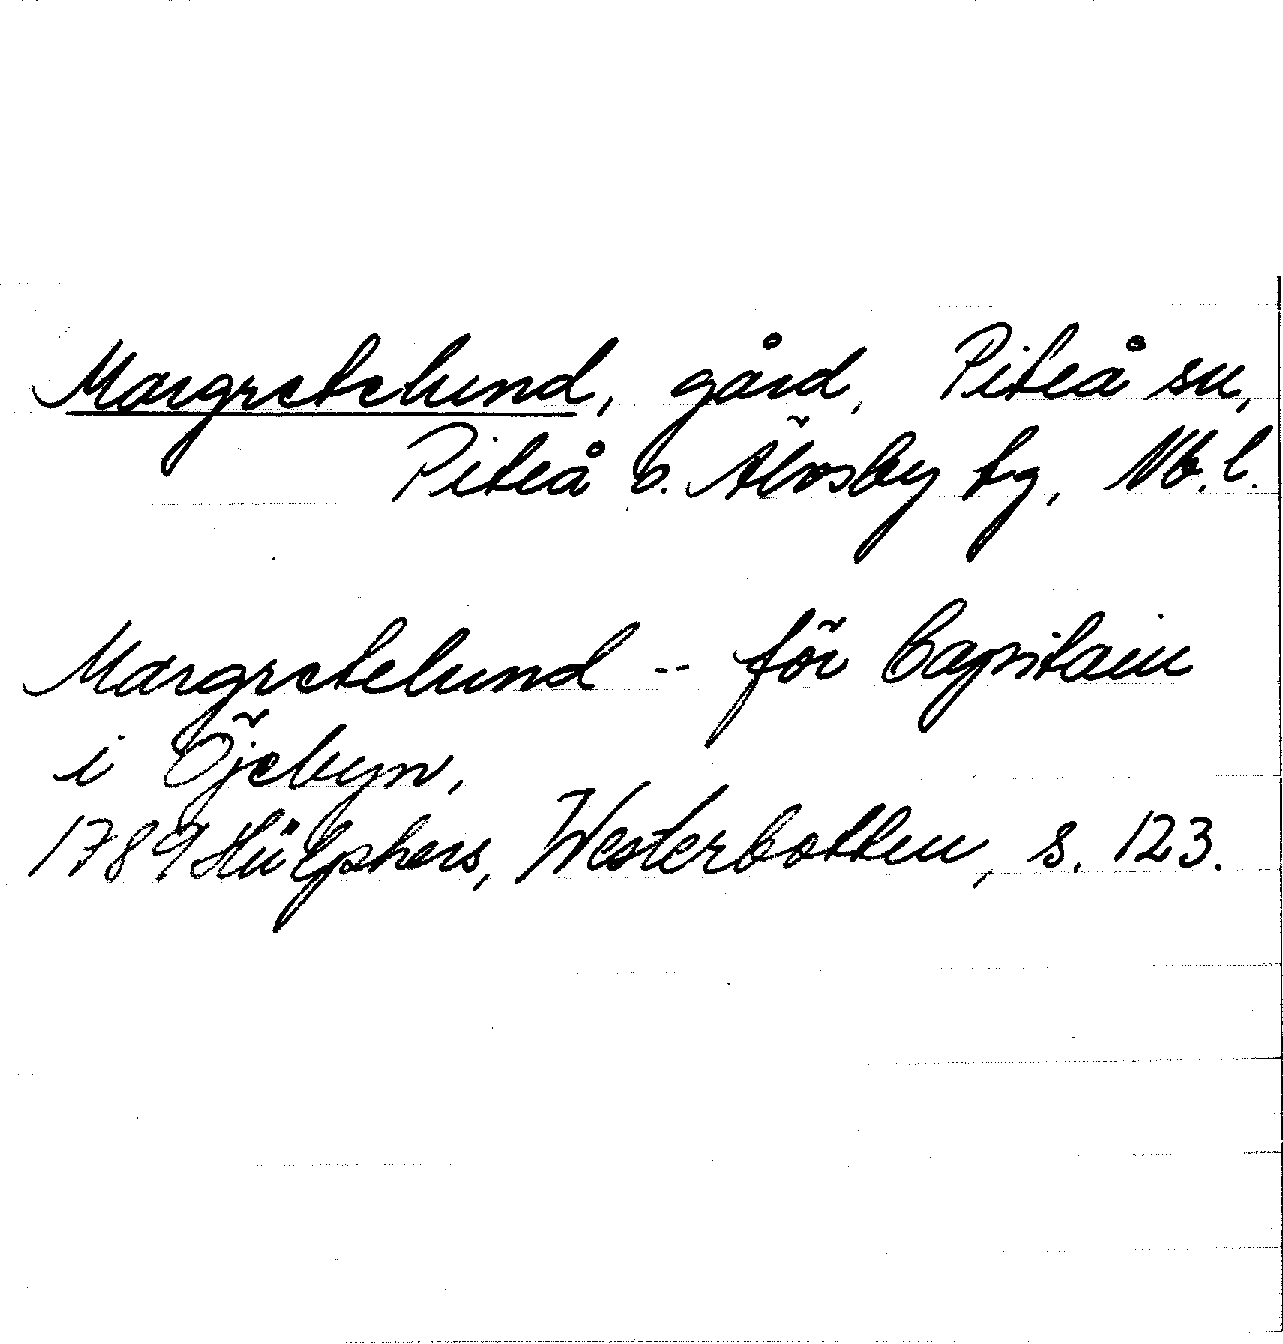 Margretelund, gård, Piteå sn,
Piteå o. Älvsby tg, Nb.l.
Margretelund -- för Capitain
i Öjebyn.
1789 Hülphers, Westerbotten, s. 123.